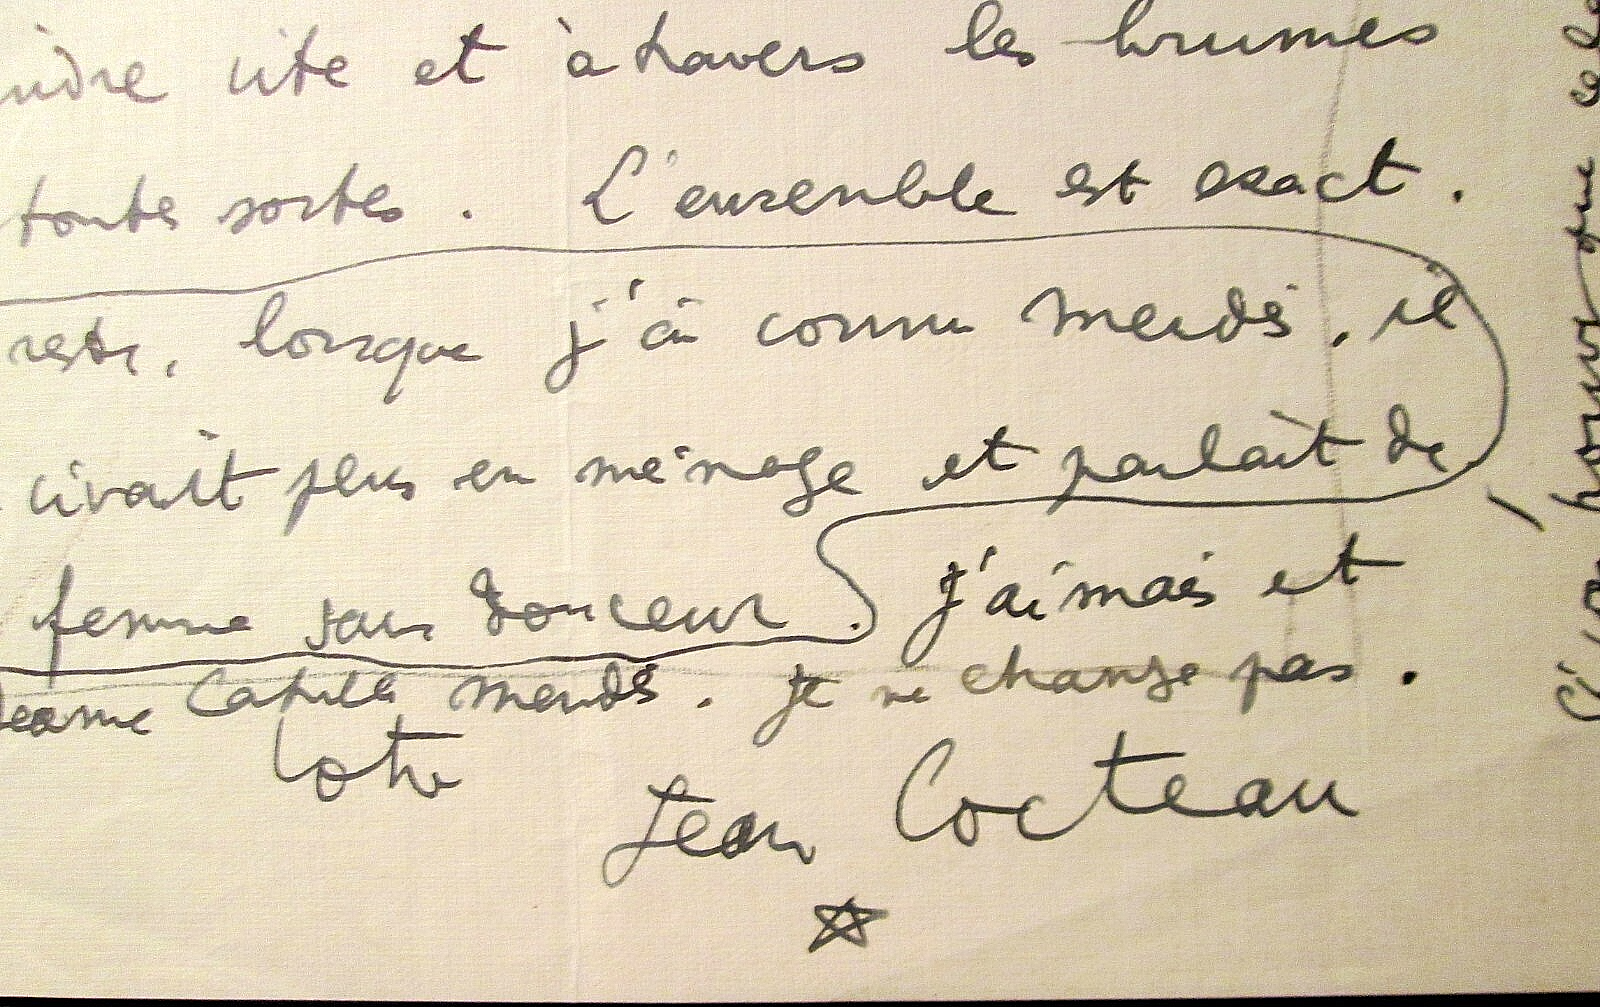 indre vite et à travers les brumes
toutes sortes. L'ensemble est exact.
reste, lorsque j'ai connu Mendès, il
vivait plus en ménage et parlait de
femme sans douceur. J'aimais et
Catulle Mendès. Je ne change pas.
Votre
Jean Cocteau
que